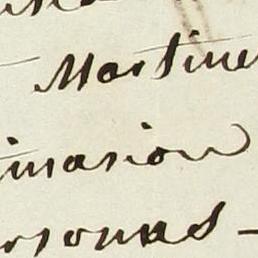 Martine
imasion
ersonas -